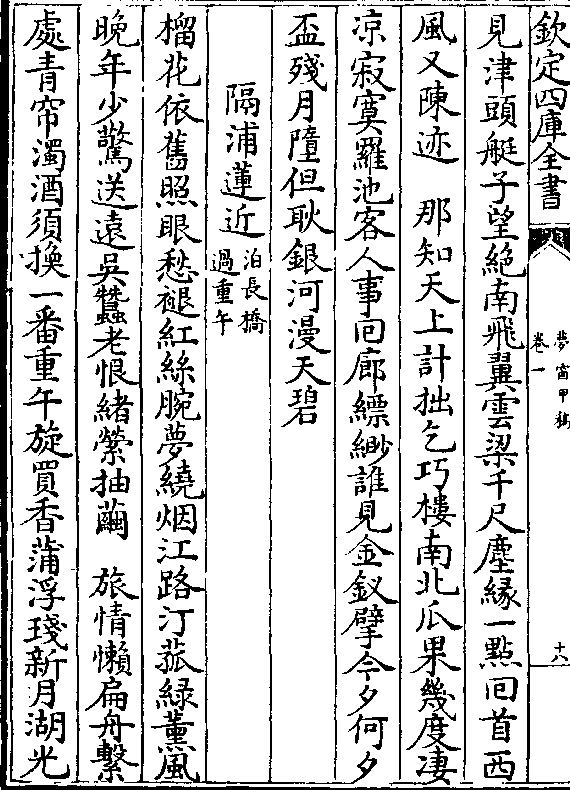 欽定四庫全書
夢窗甲稿
卷一
十八
見津頭艇子望絕南飛翼雲梁千尺塵緣一點回首西
風又陳迹　那知天上計拙乞巧樓南北瓜果幾度淒
涼寂寞羅池客人事回廊縹緲誰見金釵擘今夕何夕
盃殘月墮但耿銀河漫天碧
隔浦蓮近
泊長橋
過重午
榴花依舊照眼愁褪紅絲腕夢繞烟江路汀菰綠薰風
晚年少驚送遠吳蠶老恨緒縈抽繭　旅情懶扁舟繫
處青帘濁酒須換一番重午旋買香蒲浮琖新月湖光